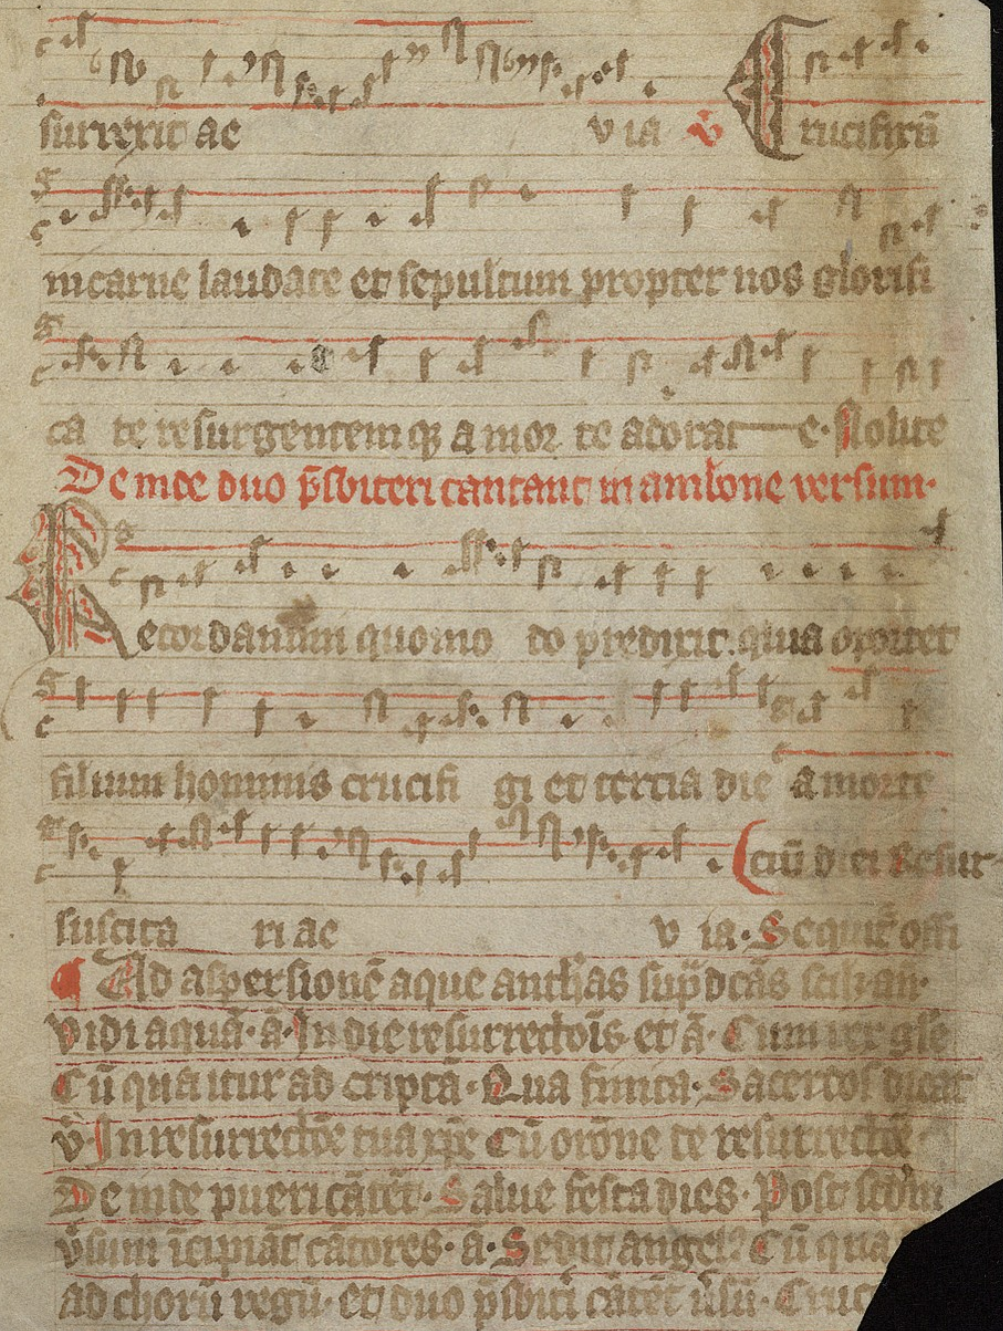 surrexit ae v ia v̄ Crucifixū
incarne laudate et sepultum propter nos glorifi
ca te resurgentemqꝫ a mor te adorat e. Nolite
Deinde duo p̄sbiteri cantant in ambone versum.
Recordamini quomo do predixit. quia oportet
filium hominis crucifi gi et tercia die a morte
ciū diei Resur
suscita ri ae v ia. Sequit᷑ offi
Ad aspersionē aque anthās sup̄dcās scil. an.
Vidi aquā. ā. In die resurrectōis et ā. Cum rex glē
Cū qua itur ad criptā. Qua finita. Sacerdos dicat
v̄. In resurrectōe tua xp̄e Cū orōne de resurrectōe.
Deinde pueri cātēt. Salue festa dies. Post scdm
v̄sum īcipiāt cātores. ā. Sedit angel᷒ Cū qua
ad chorū regū. et duo p̄sbiti cātēt v̄sū. Cruc